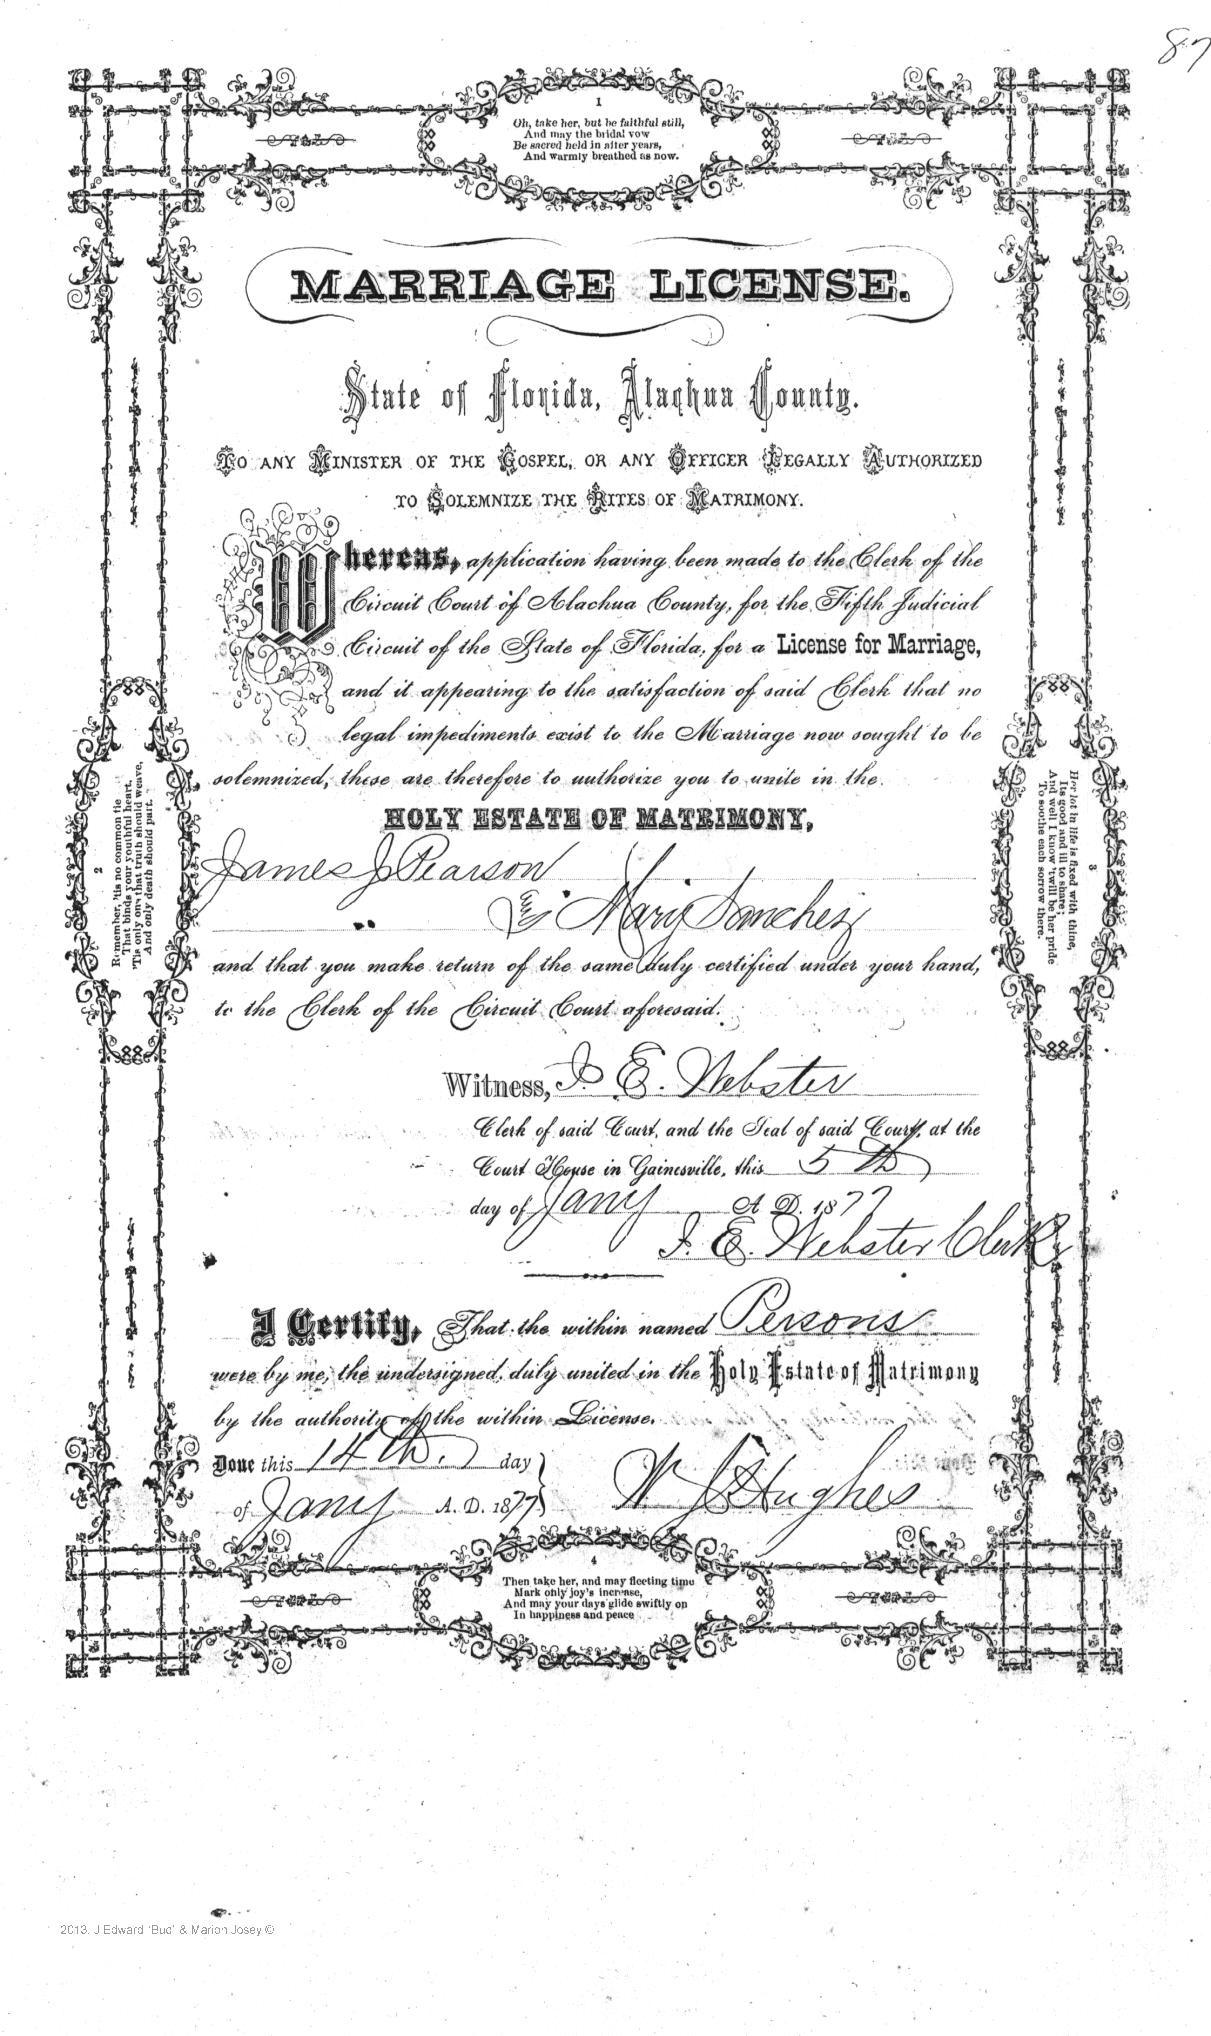 87
1
Oh, take her, but be faithful still,
And may the bridal vow
Be sacred held in after years,
And warmly breathed as now.
MARRIAGE LICENSE.
State of Florida, Alachua County.
TO ANY MINISTER OF THE GOSPEL, OR ANY OFFICER LEGALLY AUTHORIZED
TO SOLEMNIZE THE RITES OF MATRIMONY.
Whereas, application having been made to the Clerk of the
Circuit Court of Alachua County, for the Fifth Judicial
Circuit of the State of Florida, for a License for Marriage,
and it appearing to the satisfaction of said Clerk that no
legal impediments exist to the Marriage now sought to be
solemnized, these are therefore to authorize you to unite in the
HOLY ESTATE OF MATRIMONY,
James J Pearson
& Mary Sanchez
and that you make return of the same duly certified under your hand,
to the Clerk of the Circuit Court aforesaid.
Witness, J. E. Webster
Clerk of said Court, and the Seal of said Court, at the
Court House in Gainesville, this 5th
day of Jany A. D. 1877
J. E. Webster Clerk
I Certify, That the within named Persons
were by me, the undersigned, duly united in the Holy Estate of Matrimony
by the authority of the within License.
Done this 14th. day
of Jany A. D. 1877
W J Hughes
2
Remember, 'tis no common tie
That binds your youthful heart,
'Tis only one that truth should weave,
And only death should part.
3
Her lot in life is fixed with thine,
Its good and ill to share;
And well I know 'twill be her pride
To soothe each sorrow there.
4
Then take her, and may fleeting time
Mark only joy's increase,
And may your days glide swiftly on
In happiness and peace
2013. J Edward 'Bud' & Marion Josey ©